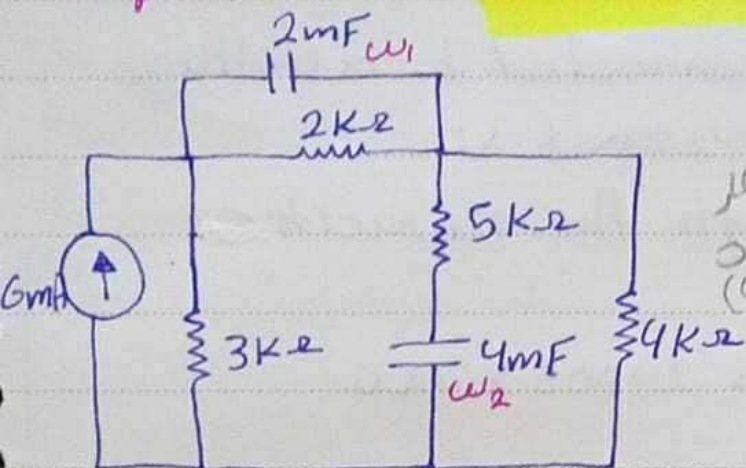 2mF ω1
2kΩ
5kΩ
6mA
3kΩ
4mF
4kΩ
ω2